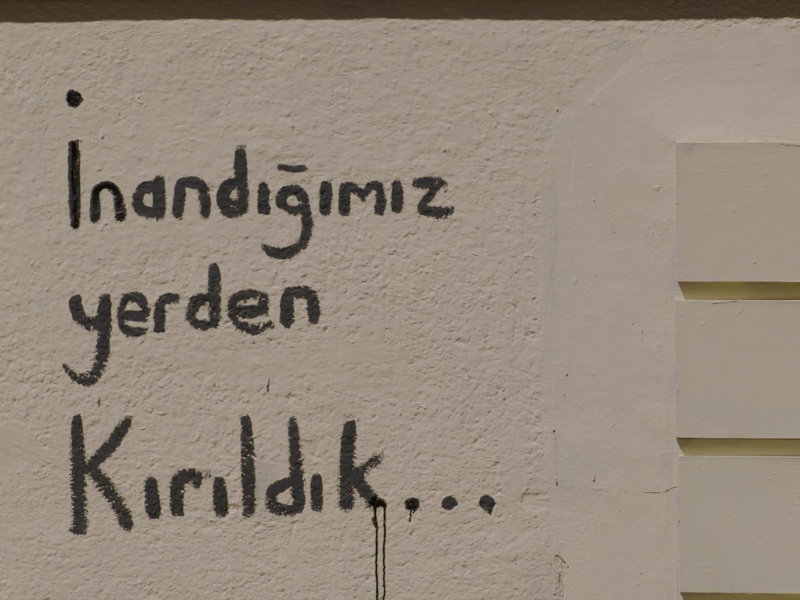 İnandığımız
yerden
Kırıldık....